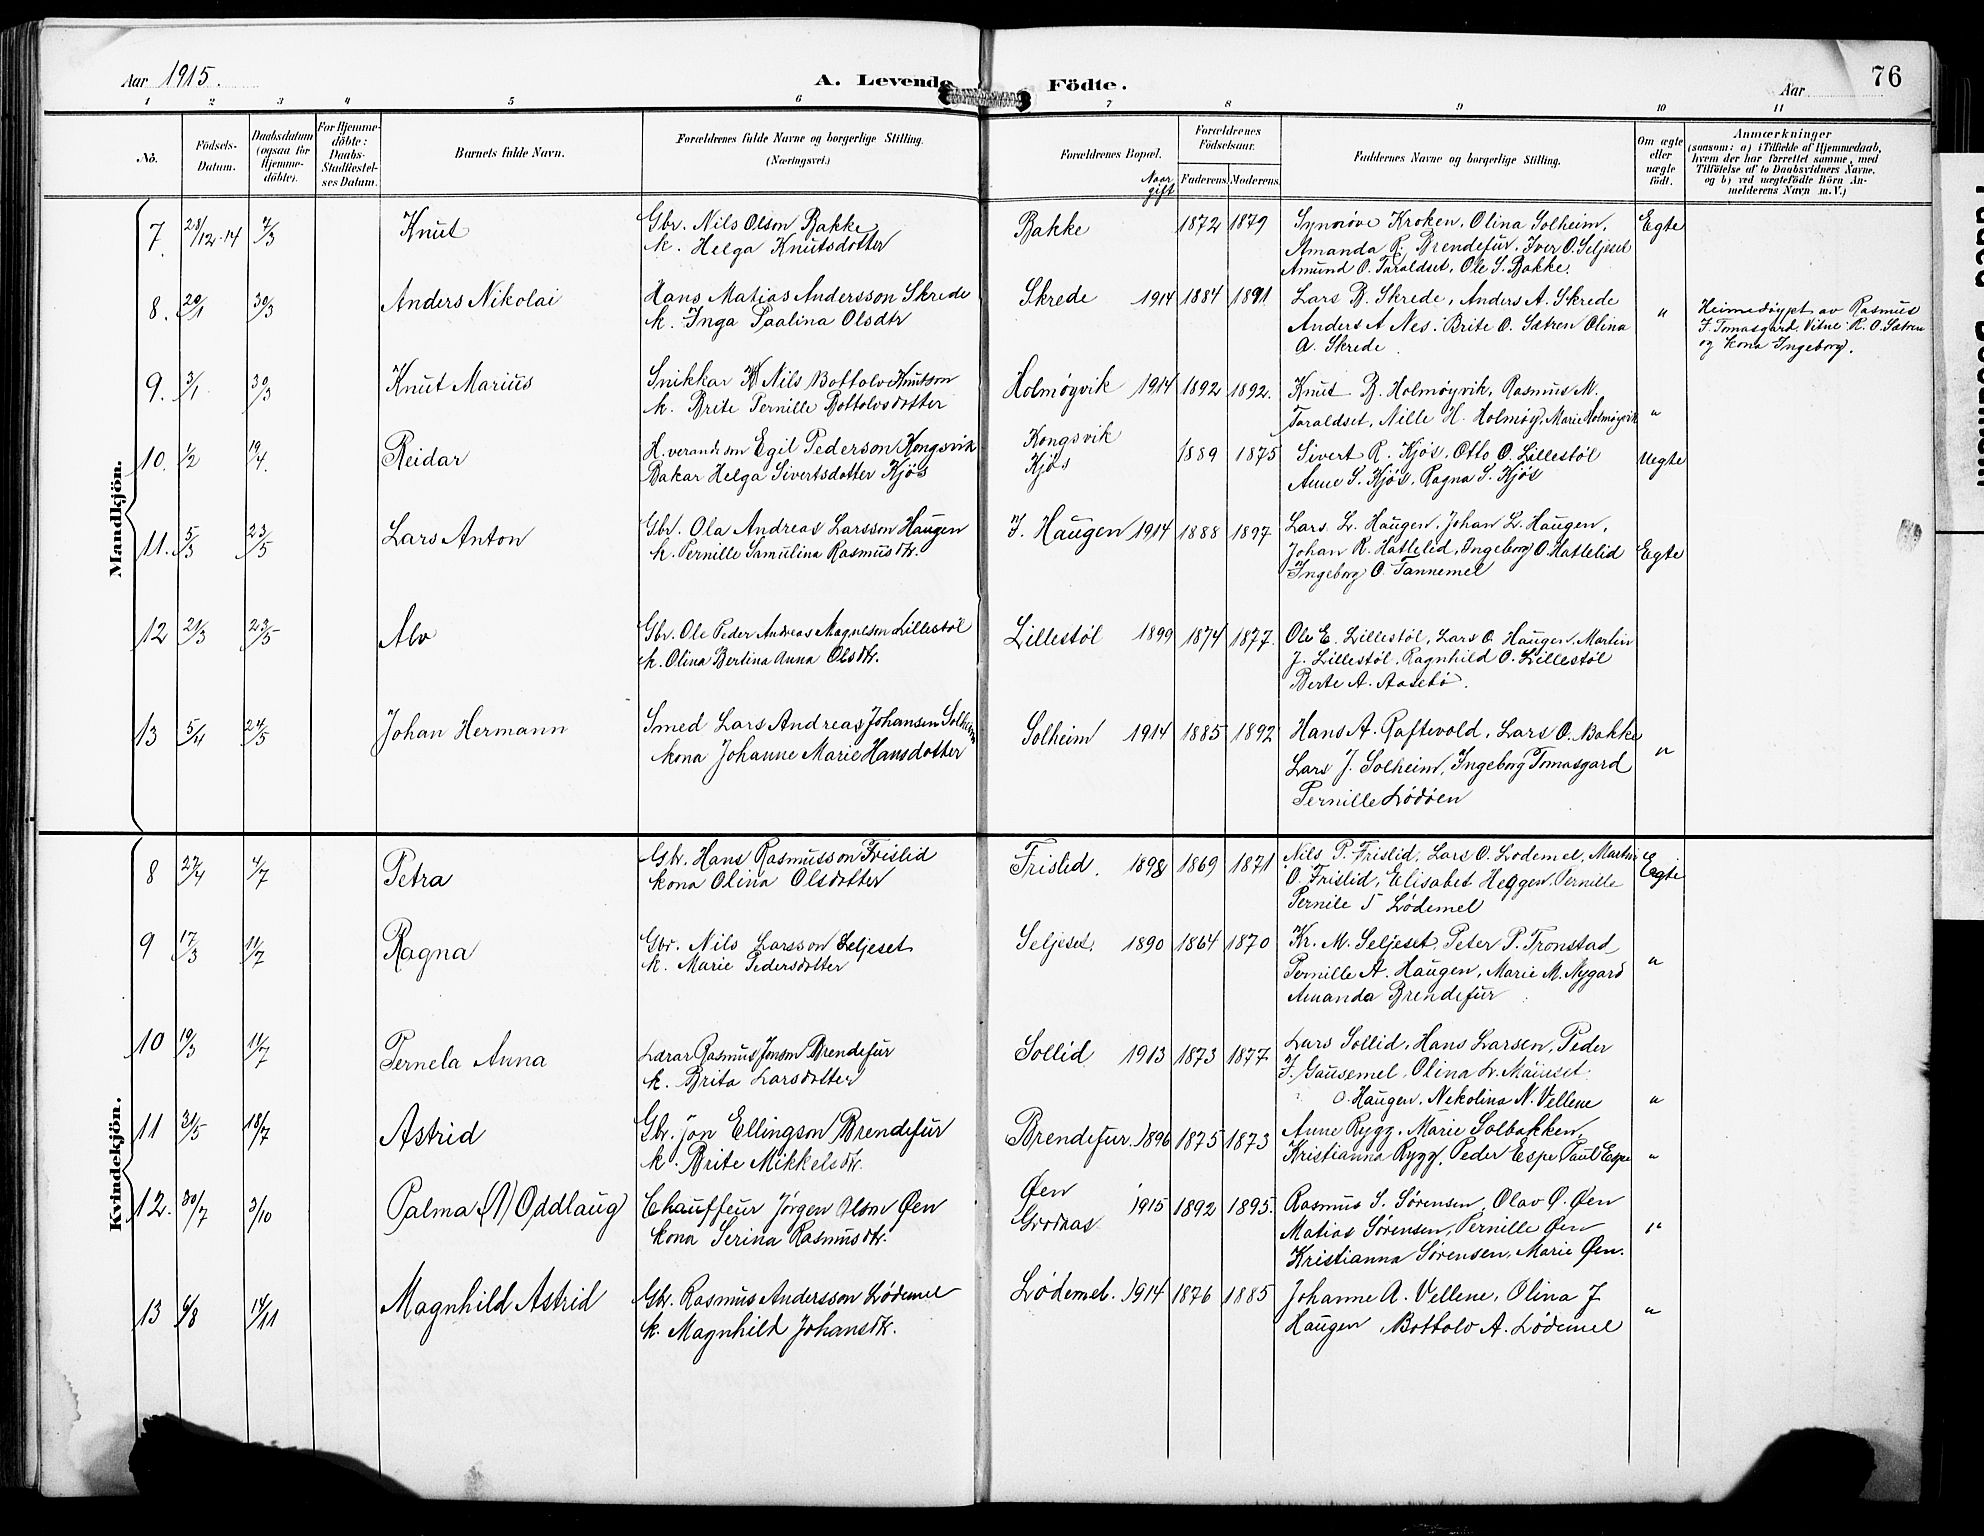 Aar 1915. A. Levende Födte. Aar 76
1 2 3 4 5 6 7 8 9 10 11
No. Födsels-Datum. Daabsdatum (ogsaa for Hjemmedöbte). For Hjemmedöbte: Daabs-Stadfæstelses Datum. Barnets fulde Navn. Forældrenes fulde Navne og borgerlige Stilling. (Næringsvei.) Forældrenes Bopæl. Naar gift Forældrenes Födselsaar. Faderens Moderens. Faddernes Navne og borgerlige Stilling. Om ægte eller uægte födt. Anmærkninger (saasom: a) i Tilfælde af Hjemmedaab, hvem der har forrettet samme, med Tilföielse af to Daabsvidners Navne, og b) ved uægtefödte Börn Anmelderens Navn m. V.)
Mandkjön.
7. 28/12-14 7/3 Knut Gbr. Nils Olson Bakke Bakke 1872 1879 Synnöve Kroken, Olina Solheim, Egte
k. Helga Knutsdotter Amanda R. Brendefur, Iver O. Seljeset
Amund O. Taraldset, Ole S. Bakke.
8. 20/1 30/3 Anders Nikolai Hans Matias Andersson Skrede Skrede 1914 1884 1891 Lars B. Skrede, Anders A. Skrede " Heimedøypt av Rasmus
k. Inga Paalina Olsdtr Anders A Nes. Brite O. Sætren Olina J. Tomasgard Vitne: R. O. Sætren
A. Skrede. og kona Ingeborg.
9. 3/1 30/3 Knut Marius Snikkar Nils Bottolv Knutson Holmøyvik 1914 1892 1892. Knut B. Holmøyvik, Rasmus M.
k. Brite Pernille Bottolvsdotter Taraldset, Nille H. Holmøy, Marie Holmøyvik "
10. 1/2 19/4. Reidar H. verande son Egil Pederson Kongsvik Kongsvik 1889 1875 Sivert R. Kjøs, Otto O. Lillestøl Uegte
Bakar Helga Sivertsdotter Kjøs Kjøs Anne S. Kjøs, Ragna S. Kjøs
11. 5/3 23/5 Lars Anton Gbr. Ola Andreas Larsson Haugen I. Haugen 1914 1888 1897 Lars L. Haugen, Johan L. Haugen,
k. Pernille Samulina Rasmusdtr. Johan R. Hattelid, Ingeborg O. Hattelid Egte
Ingeborg O. Tannemel
12 21/3 23/5 Alv Gbr. Ole Peder Andreas Magneson Lillestøl Lillestøl 1899 1874 1877. Ole E. Lillestøl, Lars O. Haugen, Martin
k. Olina Bertina Anna Olsdtr. J. Lillestøl, Ragnhild O. Lillestøl
Berte A. Aasebø.
13 5/4 24/5 Johan Hermann Smed Lars Andreas Johansen Solheim Solheim 1914 1885 1892 Hans A. Raftevold, Lars O. Bakke
kona Johanne Marie Hansdotter Lars J. Solheim, Ingeborg Tomasgard "
Pernille Lødøen
Kvindekjön.
8 27/4 4/7 Petra Gbr. Hans Rasmusson Frislid Frislid. 1898 1869 1871 Nils P. Frislid, Lars O. Lødemel, Martin Egte
kona Olina Olsdotter O. Frislid, Elisabet Heggen, Pernille
Pernile S Lødemel
9 17/3 11/7 Ragna Gbr. Nils Larsson Seljeset Seljeset. 1890 1864 1870 Kr. M. Seljeset, Peter P. Tronstad
k. Marie Pedersdotter Pernille A. Haugen, Marie M. Nygard "
Amanda Brendefur
10 19/3 11/7 Pernela Anna Lærar Rasmus Jonson Brendefur Sollid 1913 1873 1877 Lars Sollid, Hans Larsen, Peder
k. Brita Larsdotter J. Gausemel, Olina L. Maurset
O. Haugen, Nekolina N. Vellene "
11 31/5 18/7 Astrid Gbr. Jon Ellingson Brendefur Brendefur. 1896 1875 1873 Anne Rygg, Marie Solbakken,
k. Brite Mikkelsdtr. Kristianna Rygg, Peder Espe Paul Espe "
12. 30/7 3/10 Palma (A) Oddlaug Chauffeur Jørgen Olson Øen Øen 1915 1892 1895. Rasmus S. Sørensen, Olav O. Øen
kona Serina Rasmusdtr. Grodaas. Matias Sørensen, Pernille Øen "
Kristianna Sørensen, Marie Øen.
13 6/8 14/11 Magnhild Astrid Gbr. Rasmus Andersson Lødemel Lødemel. 1914 1876 1885 Johanne A. Vellene, Olina J
k. Magnhild Johansdtr. Haugen, Bottolv A. Lødemel "